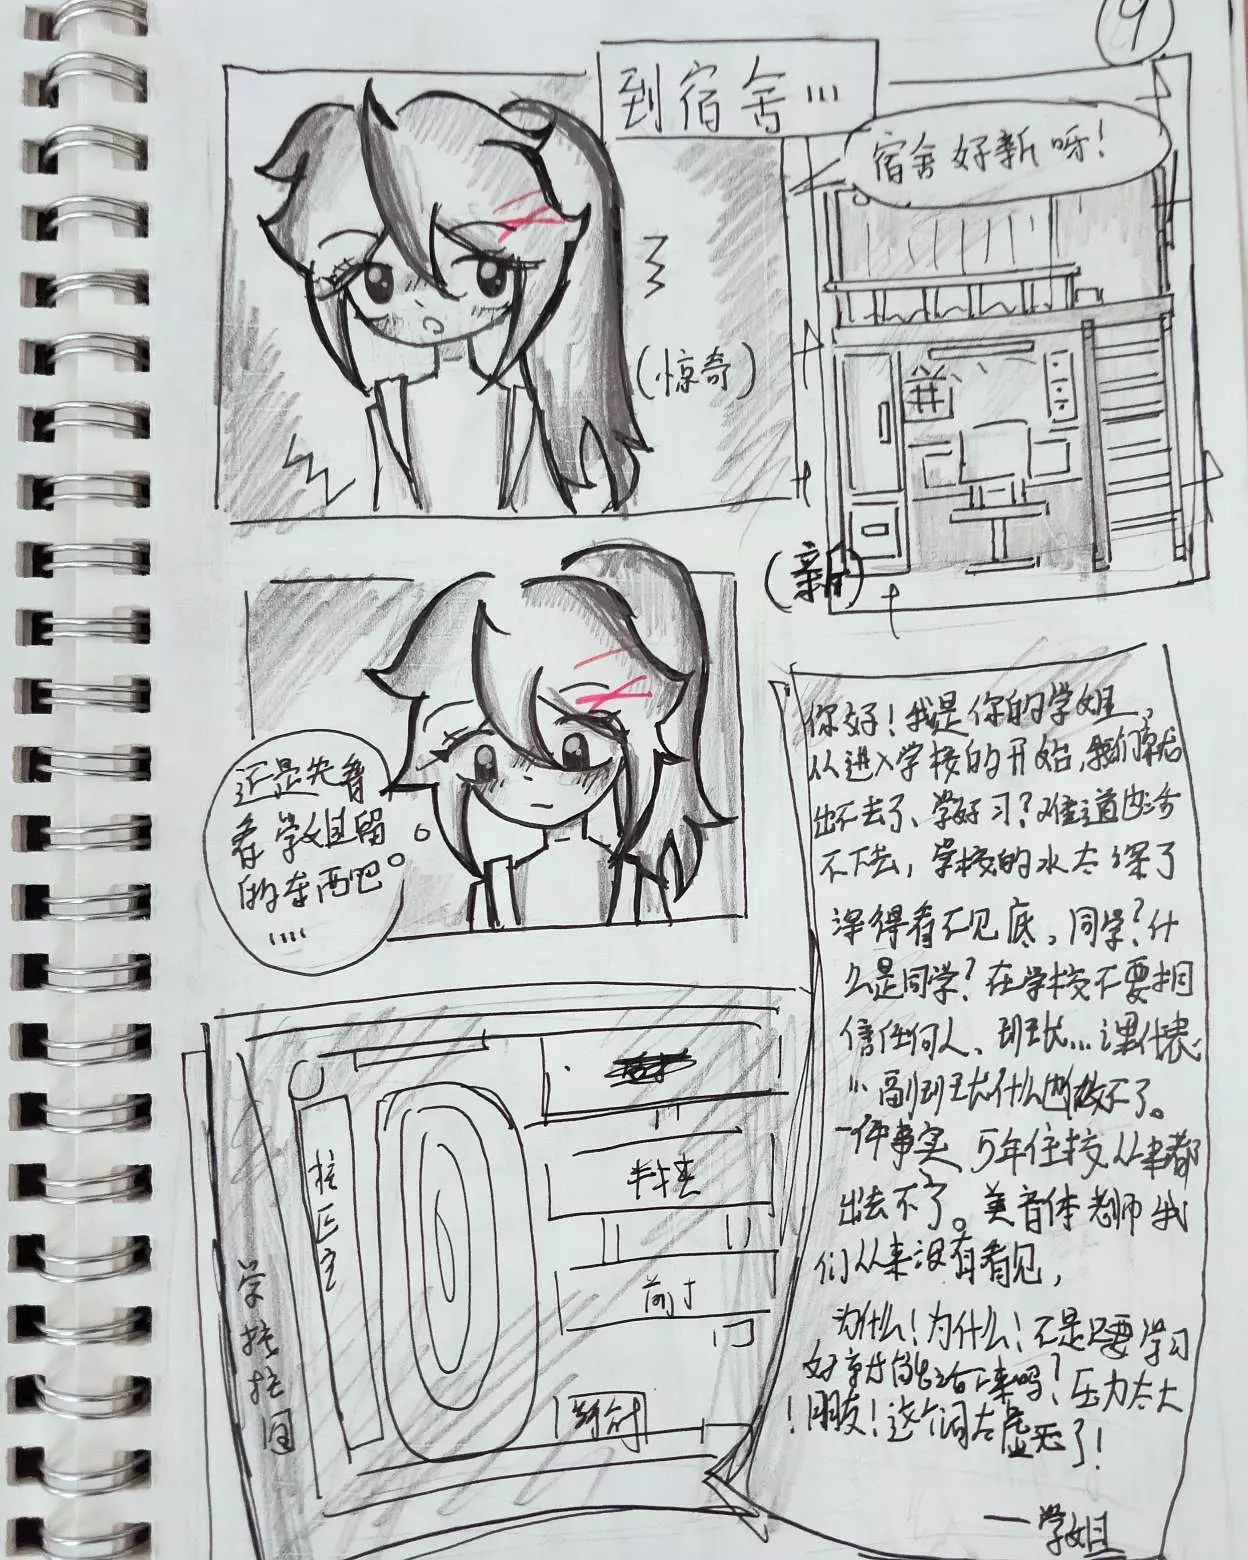 9
到宿舍…
宿舍好新呀！
(惊奇)
(新)
还是先看
看学姐留
的东西吧。
……
你好！我是你的学姐，
从进入学校的开始，我们就
出不去了、学好习？难道
不下去，学校的水太深了
深得看不见底，同学？什
么是同学？在学校不要相
信任何人、班长…课代表
副班长什么也做不了。
一件事实，5年住校从来都
出去不了。美音体老师我
们从来没有看见，
为什么！为什么！不是只要学习
好就能活下来吗？压力太大
！朋友！这个词太虚恶了！
—学姐